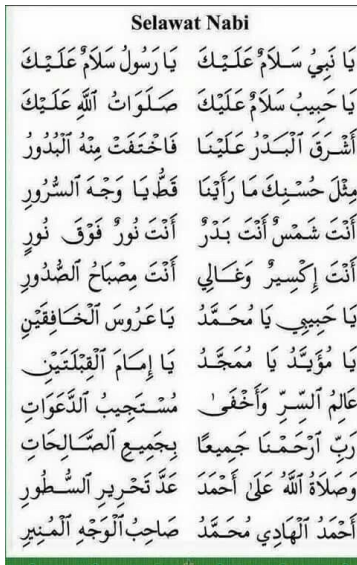 Selawat Nabi
يَا نَبِيُ سَلَامٌ عَلَيْكَ يَا رَسُولُ سَلَامٌ عَلَيْكَ
يَا حَبِيبُ سَلَامٌ عَلَيْكَ صَلَوَاتُ اللَّهِ عَلَيْكَ
أَشْرَقَ الْبَدْرُ عَلَيْنَا فَاخْتَفَتْ مِنْهُ الْبُدُورُ
مِثْلَ حُسْنِكَ مَا رَأَيْنَا قَطُّ يَا وَجْهَ السُّرُورِ
أَنْتَ شَمْسٌ أَنْتَ بَدْرٌ أَنْتَ نُورٌ فَوْقَ نُورٍ
أَنْتَ إِكْسِيرٌ وَغَالِي أَنْتَ مِصْبَاحُ الصُّدُورِ
يَا حَبِيبِي يَا مُحَمَّدُ يَا عَرُوسَ الْخَافِقَيْنِ
يَا مُؤَيَّدُ يَا مُمَجَّدُ يَا إِمَامَ الْقِبْلَتَيْنِ
عَالِمُ السِّرِّ وَأَخْفَى مُسْتَجِيبُ الدَّعَوَاتِ
رَبِّ ارْحَمْنَا جَمِيعًا بِجَمِيعِ الصَّالِحَاتِ
وَصَلَاةُ اللَّهِ عَلَى أَحْمَدَ عَدَّ تَحْرِيرِ السُّطُورِ
أَحْمَدُ الْهَادِي مُحَمَّدُ صَاحِبُ الْوَجْهِ الْمُنِيرِ